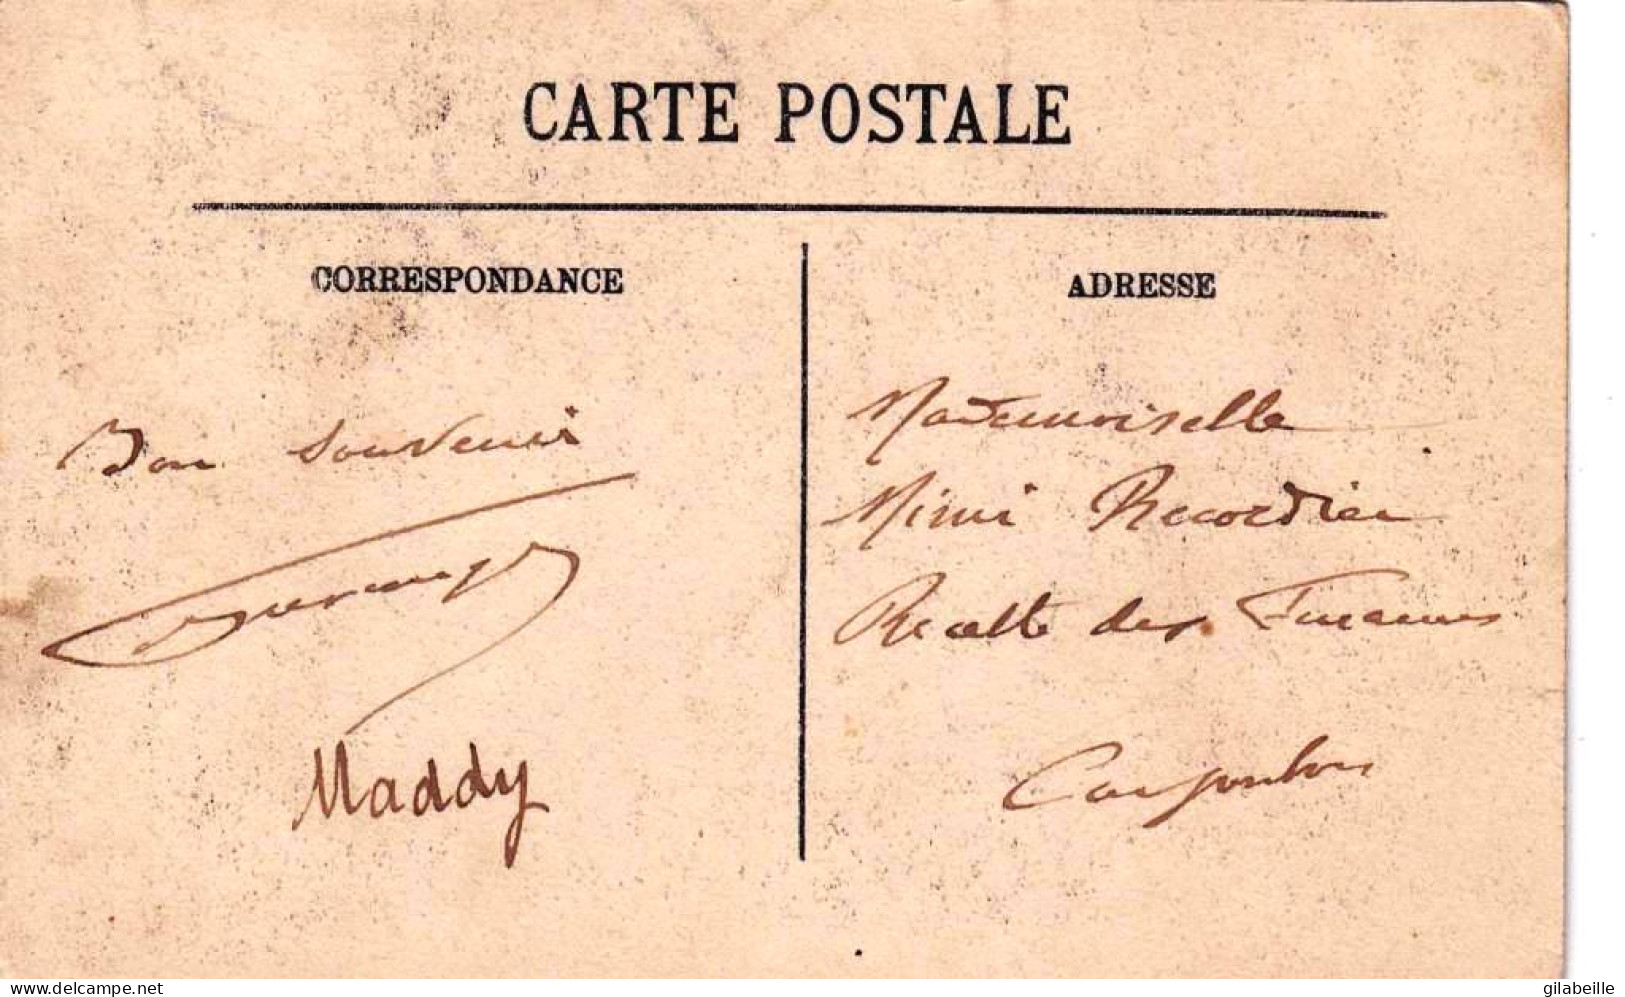 CARTE POSTALE
CORRESPONDANCE
Bon souvenir
Maddy
ADRESSE
Mademoiselle
Mimi Recordier
Recette des Finances
Carpentras
www.delcampe.net
gilabeille